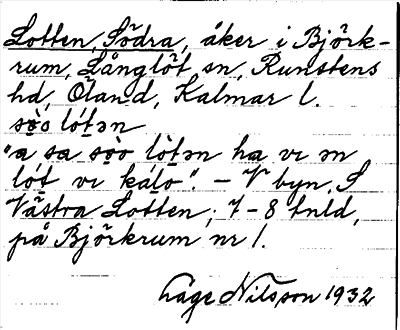 Lotten, Södra, åker i Björk-
rum, Långlöt sn, Runstens
hd, Öland, Kalmar l.
sø̀o lót̠ən
"a sa sø̀o lòt̠ən ha vi ən
lót̠ vi kálo". – V byn, S
Västra Lotten; 7-8 tnld,
på Björkrum nr 1.
Nilsson 1932